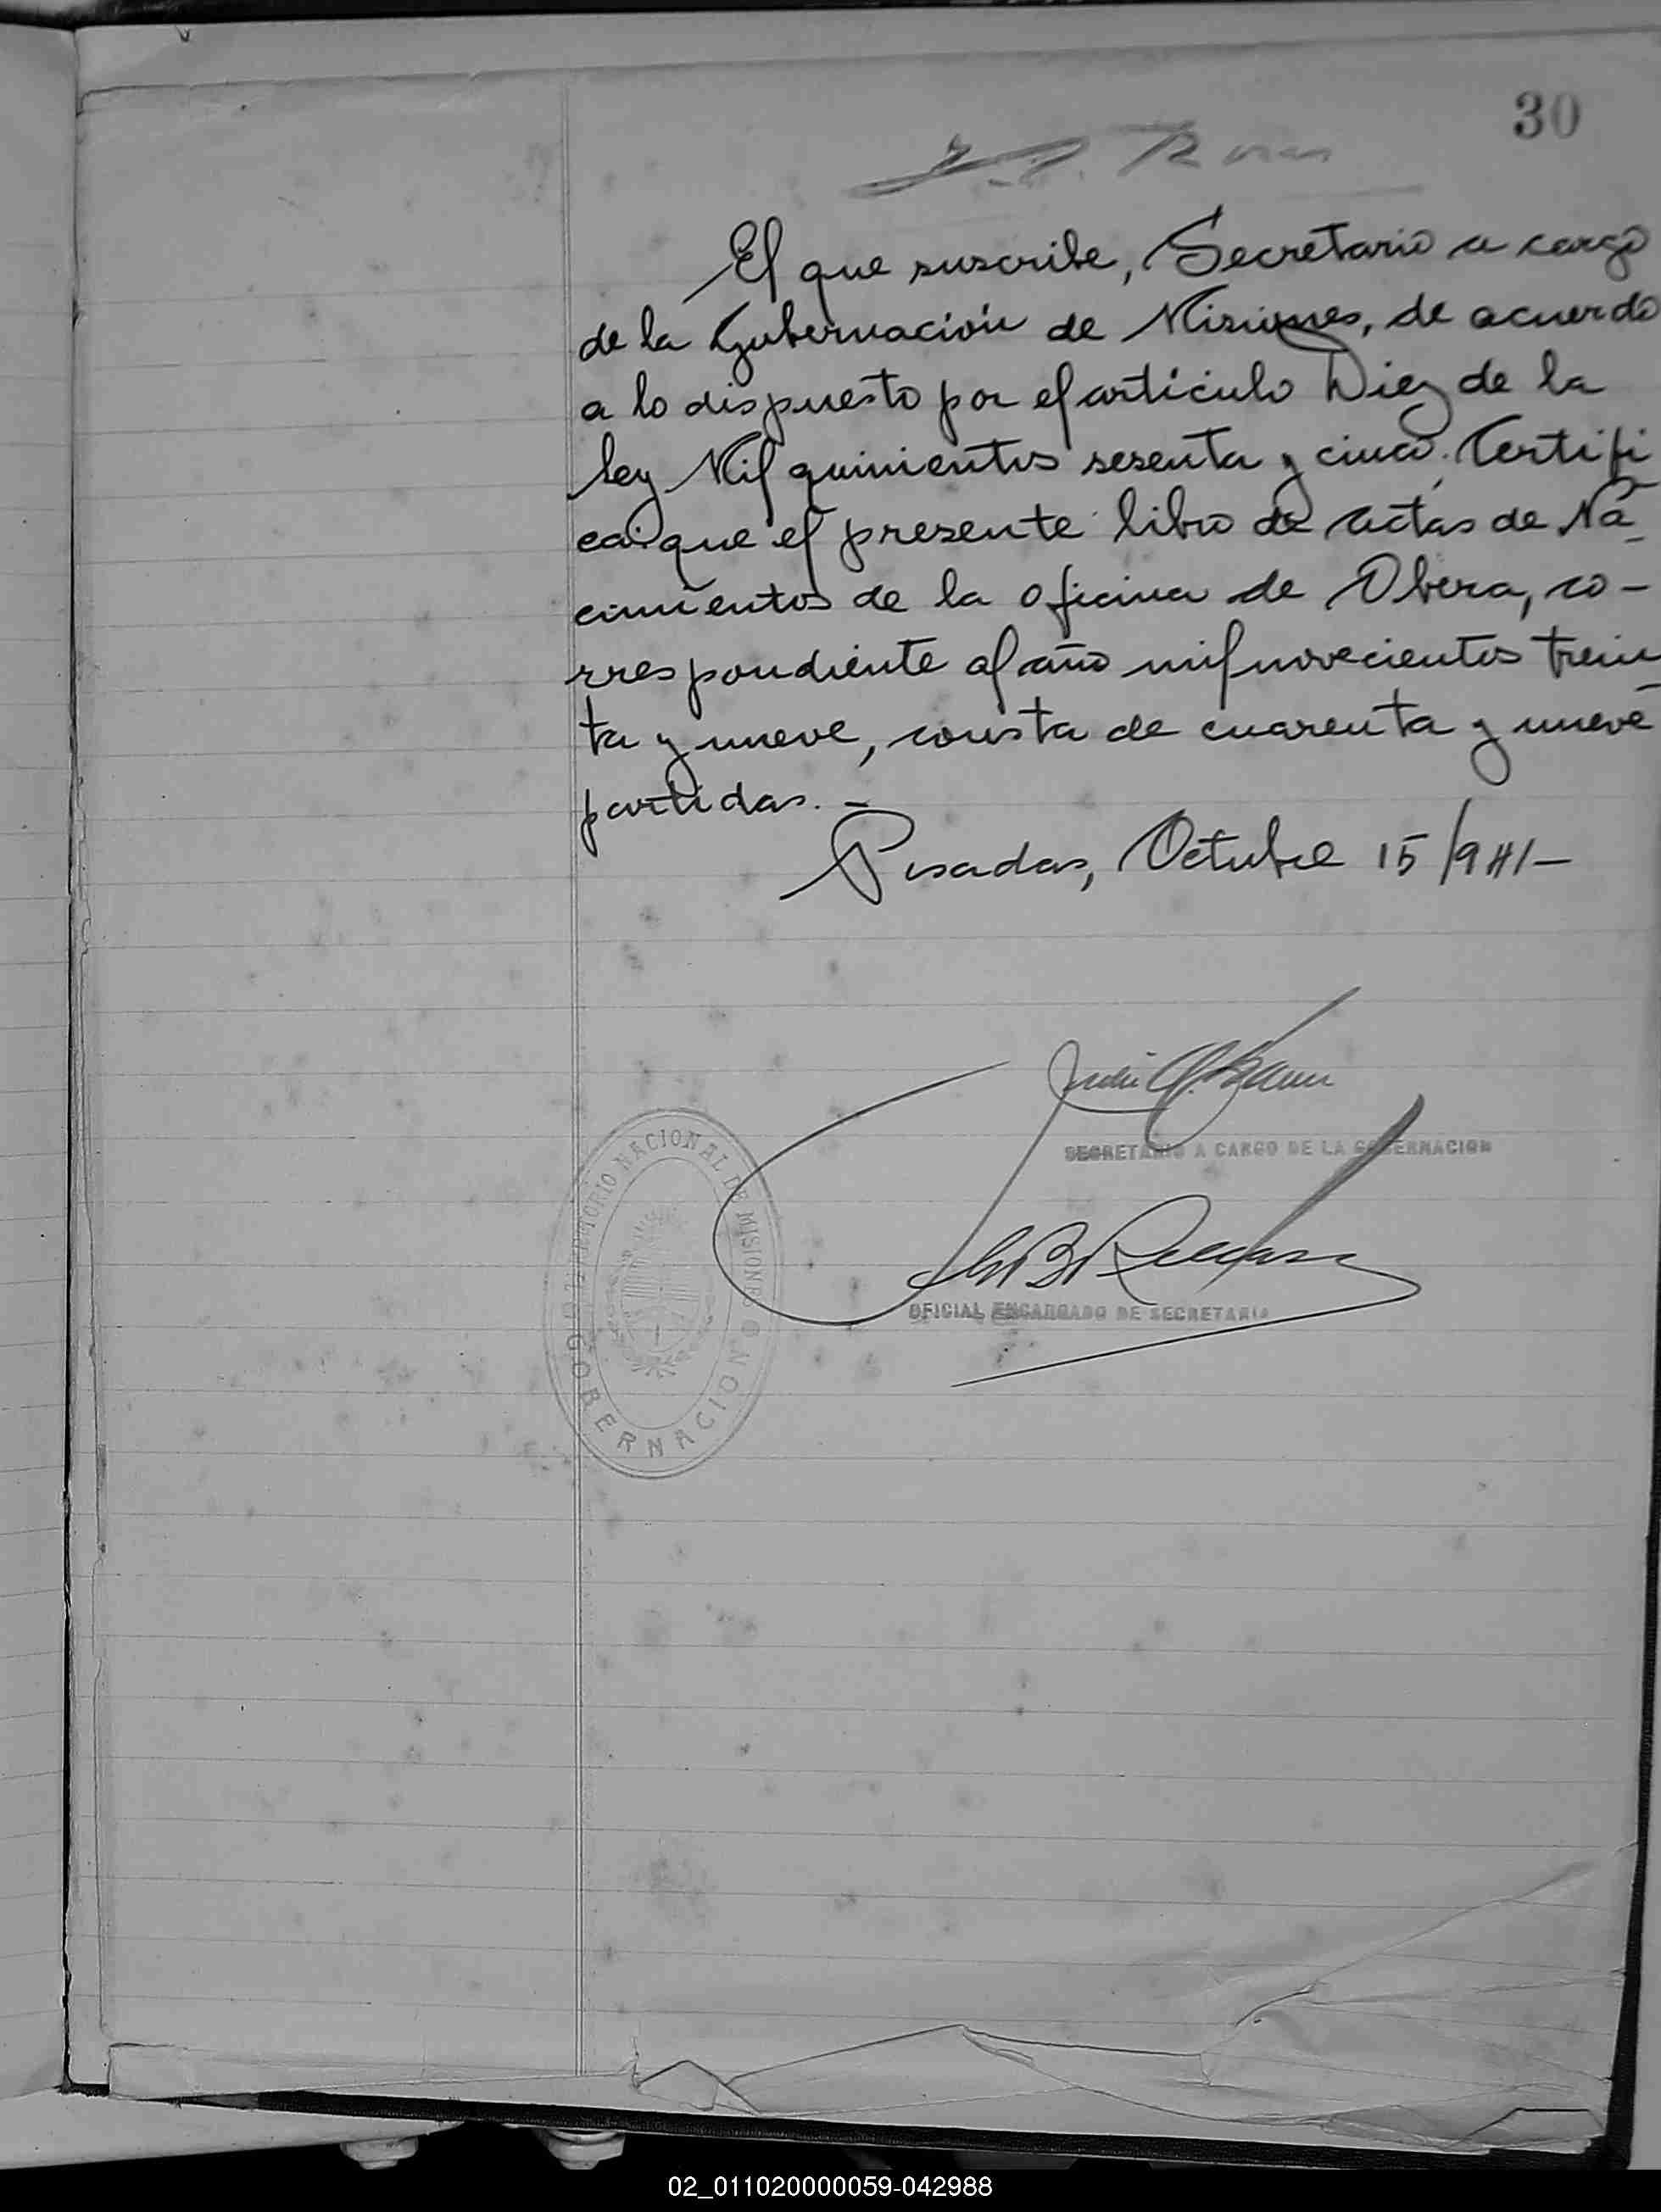 30
El que suscribe, Secretario a cargo
de la Gobernación de Misiones, de acuerdo
a lo dispuesto por el artículo Diez de la
ley Mil quinientos sesenta y cinco, Certifi
ca: que el presente libro de actas de Na
cimientos de la oficina de Obera, co-
rrespondiente al año mil novecientos trein
ta y nueve, consta de cuarenta y nueve
partidas. -
Posadas, Octubre 15/941-
SECRETARIO A CARGO DE LA GOBERNACION
TERRITORIO NACIONAL DE MISIONES
GOBERNACION
OFICIAL ENCARGADO DE SECRETARIA
02_011020000059-042988